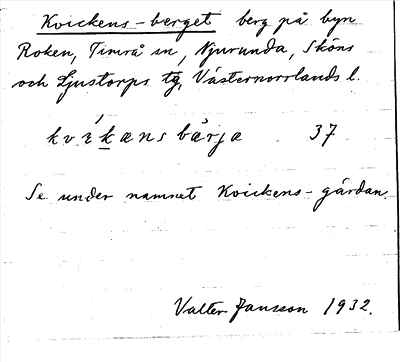 Kvickens-berget berg på byn
Roken, Timrå sn, Njurunda, Sköns
och Ljustorps tg, Västernorrlands l.
kvikæns bærjæ 37
Se under namnet Kvickens-gårdan.
Valter Jansson 1932.